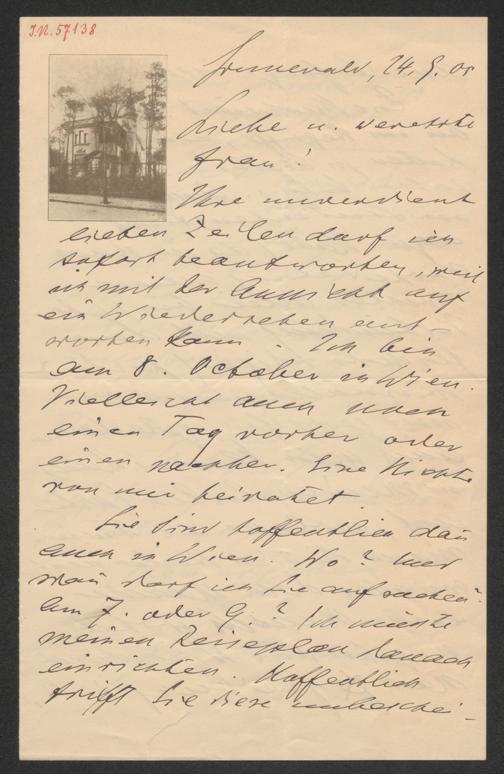 J.N. 57138
Grunewald, 24.9.05
Liebe u. verehrte
Frau!
Ihre unverdient
lieben Zeilen darf ich
sofort beantworten, weil
ich mit der Aussicht auf
ein Wiedersehen ant-
worten kann. Ich bin
am 8. October in Wien.
Vielleicht auch noch
einen Tag vorher oder
einen nachher. Eine Nichte
von mir heiratet.
Sie sind hoffentlich dann
auch in Wien. Wo? Und
wann darf ich Sie aufsuchen?
Am 7. oder 9.? Ich müsste
meinen Reiseplan danach
einrichten. Hoffentlich
trifft Sie diese unbeschei-